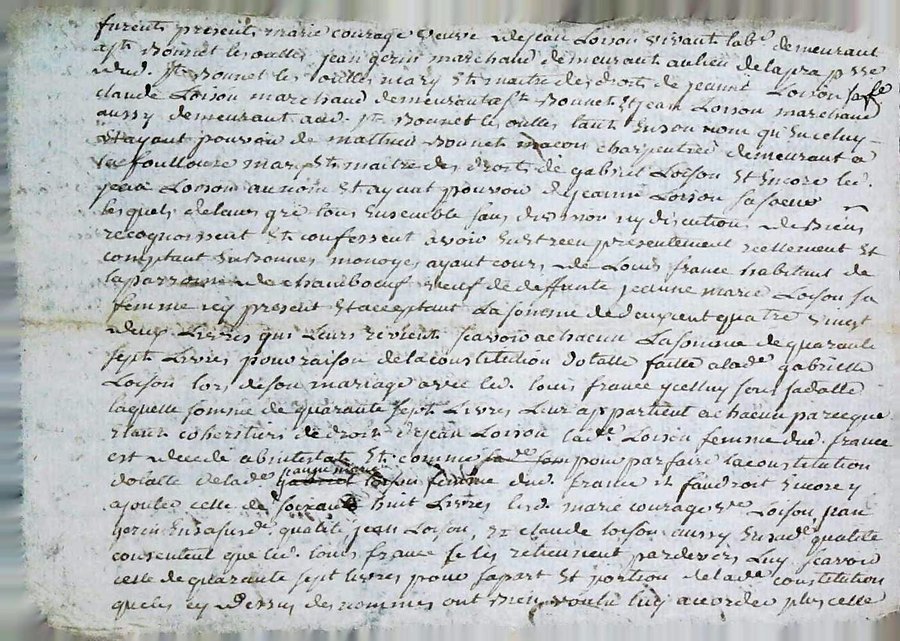 furent presents marie courage veuve de jean Loison vivant lab.r demeurant
a st Bonnet les oulles jean gerin marchand demeurant au lieu de la pra p sse
dud. st Bonnet les oulles mary et maitre des droits de jeanne Loison sa fe
claude Loison marchand demeurant a st Bonnet et jean Loison marchand
aussy demeurant aud. st Bonnet les oulles tant en son nom qu'en celuy
et ayant pouvoir de mathieu Bonnet macon charpentier demeurant a
la foullouse mary et maitre des droits de gabriel Loison et encore led.
jean Loison au nom et ayant pouvoir de jeanne Loison sa soeur
lesquels de leurs gre tous ensemble sans division ny discution de biens
recognoissent et confessent avoir eu et receu presentement reellement et
comptant en bonnes monoyes ayant cours de Louis france habitant de
la parroisse de chambœuf veuf de deffunte jeanne marie Loison sa
femme icy present et acceptant La somme de deux cent quatre vingt
deux Livres qui Leurs revient scavoir a chacun La somme de quarante
sept Livres pour raison de la constitution dotalle faitte a lade gabrielle
Loison lors de son mariage avec led. louis france ycelluy sous sa datte
laquelle somme de quarante sept Livres Leur appartient a chacun parceque
etant coheritiers de droit de jean Loison lade. Loison femme dud. france
est decede abintestat et comme pour parfaire la constitution
dotalle de lade jeanne marie Loison femme dud. france il faudroit encore y
ajouter celle de soixante huit Livres lesd. marie courage ve Loison, jean
gerin en sa susd. qualité, jean Loison, et claude Loison aussy en sade qualité
consentent que led. louis france se les retiennent pardevers Luy scavoir
celle de quarante sept livres pour sa part et portion de lade constitution
que les cy dessus denommes ont bien voulu luy accorder plus celle